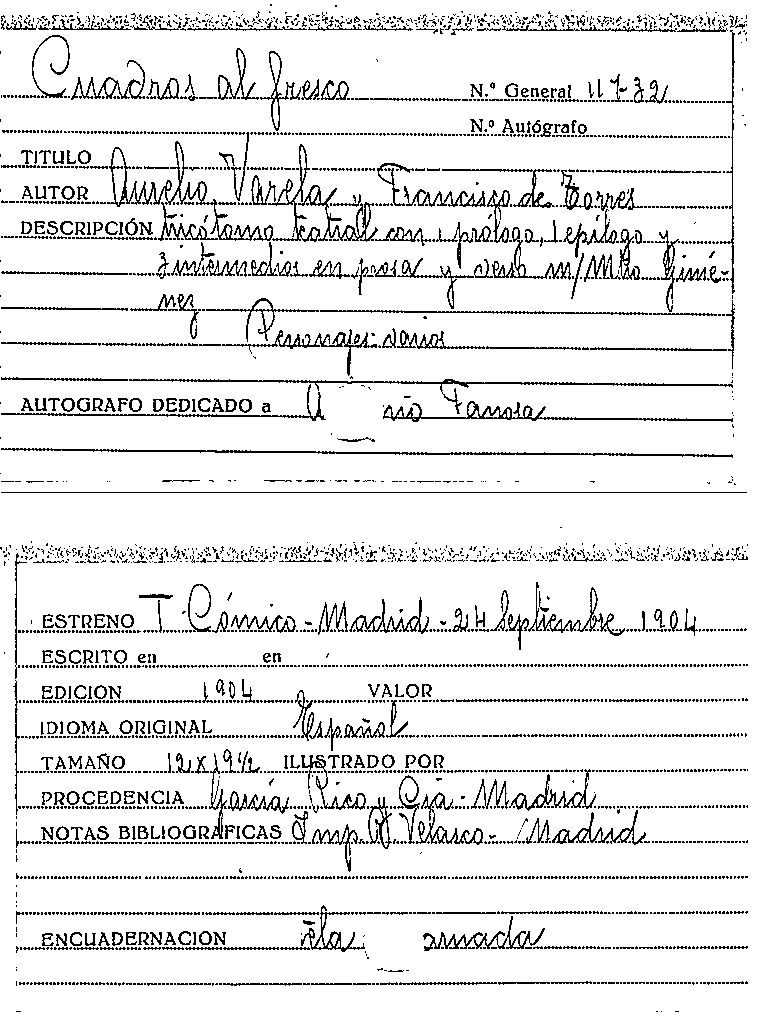 Cuadros al fresco
N.º General 117-32
N.º Autógrafo
TITULO
AUTOR Aurelio Varela y Francisco de Torres
DESCRIPCIÓN tricótomo teatral con 1 prólogo, 1 epílogo y
3 intermedios en prosa y verso m/ Mtro Gimé-
nez
Personajes: varios
AUTOGRAFO DEDICADO a
ESTRENO T. Cómico - Madrid - 24 Septiembre 1904
ESCRITO en en
EDICION 1904 VALOR
IDIOMA ORIGINAL Español
TAMAÑO 12 x 19 1/2 ILUSTRADO POR
PROCEDENCIA García Rico y Cía - Madrid
NOTAS BIBLIOGRAFICAS Imp. R Velasco - Madrid
ENCUADERNACION